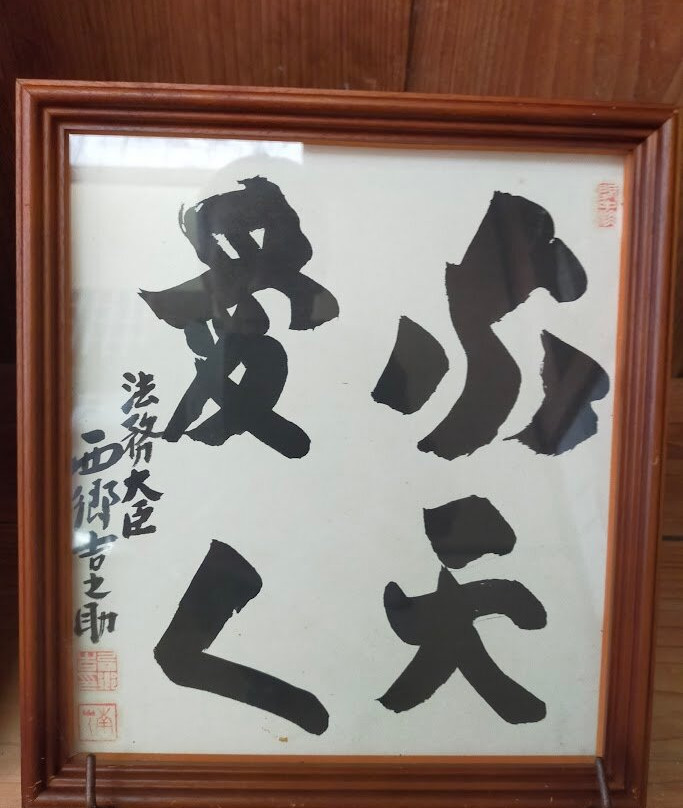 敬天
愛人
法務大臣
西郷吉之助